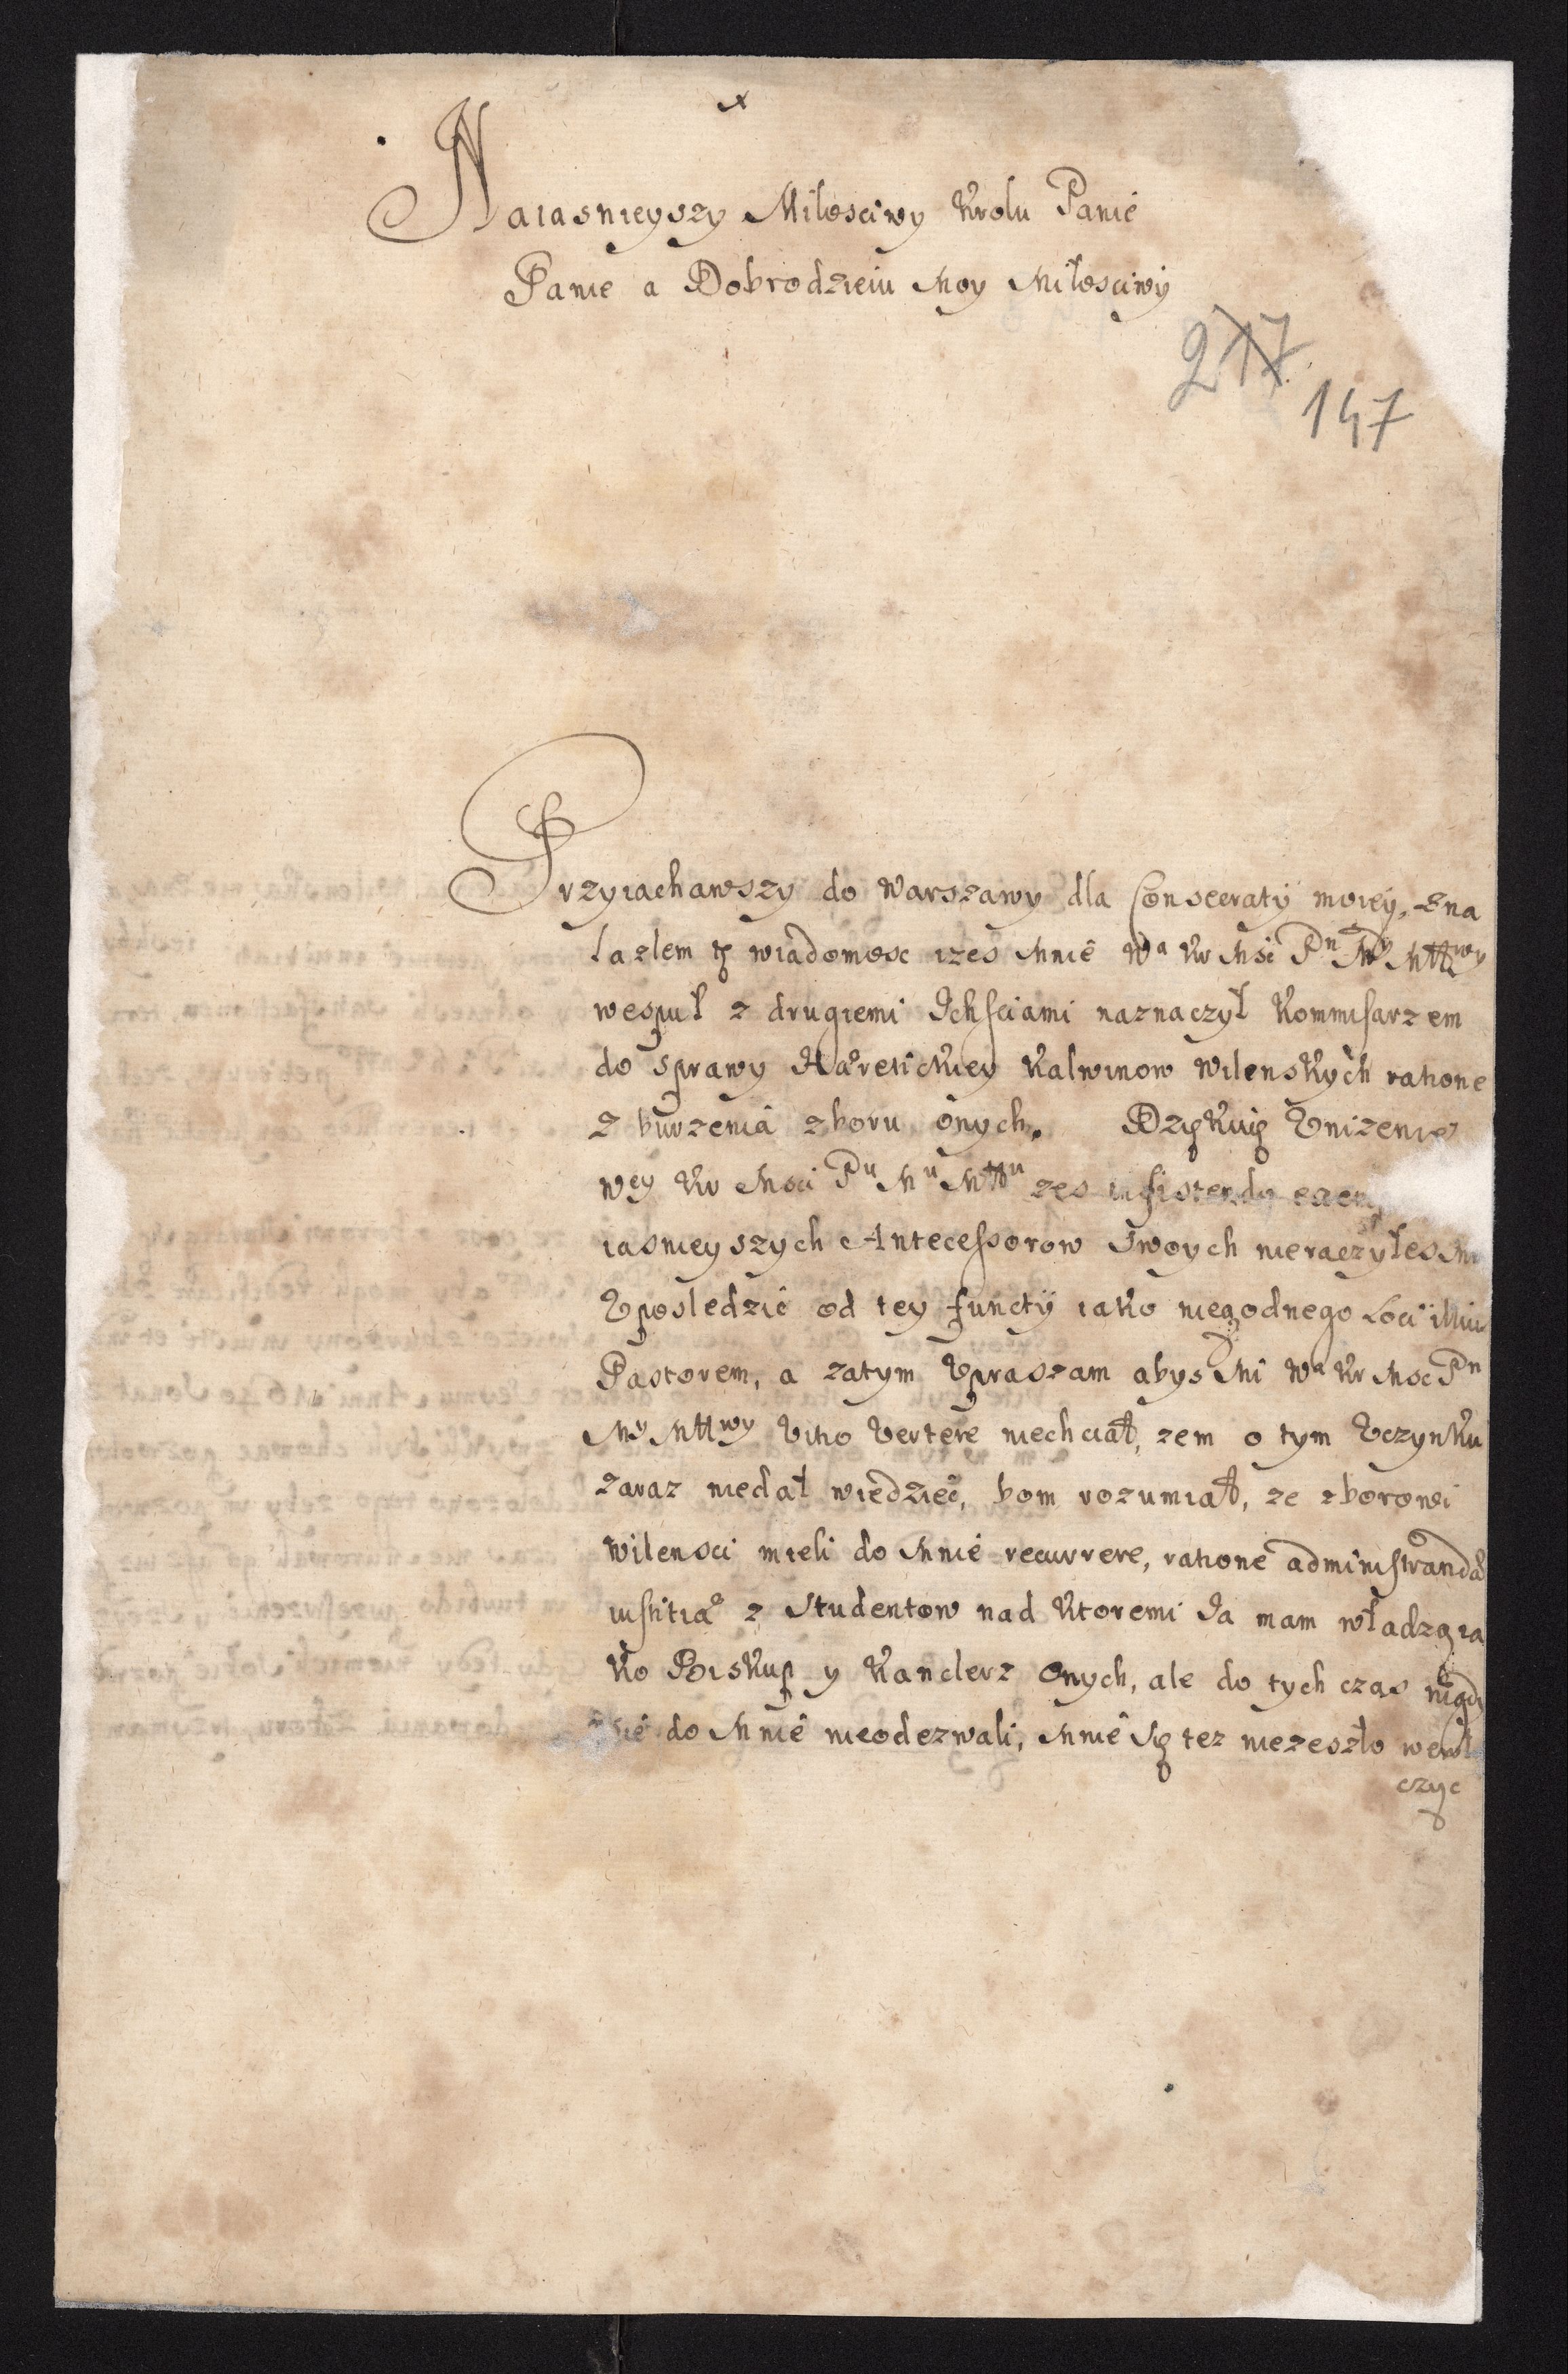 Naiasnieyszy Miłosciwy Krolu Panie
Panie a Dobrodzieiu Moy Miłosciwy
217
147
Przyiachawszy do Warszawy dla Consecraty moiey, zna
lazlem tę wiadomosc izes mnie Wa Kr Msc Pn My MMwy
wespuł z drugiemi Ichsciami naznaczył Kommisarzem
do sprawy Hæretickiey Kalwinow Wilenskych ratione
zburzenia zboru onych. Dzękuię Vnizenie
Wey Kr Msci Pu Mu MMu zes insistendo
iasnieyszych Antecessorow Swoych nieraczyłes
Vposledzić od tey functÿ iako niegodnego Loci illiu
Pastorem, a zatym Vpraszam abys mi Wa Kr Msc Pn
My MMwy Vitio Vertere niechciał, zem o tym Vczynku
zaraz niedał wiedzieć, bom rozumiał, ze zborowi
Wilensci mieli do mnie recurrere, ratione administrandæ
iustitiæ z Studentow nad ktoremi Ja mam władzą ia
ko Biskup y Kanclerz Onych, ale do tych czas nigdy
do mnie nieodezwali, mnie się tez niezeszło
czyc